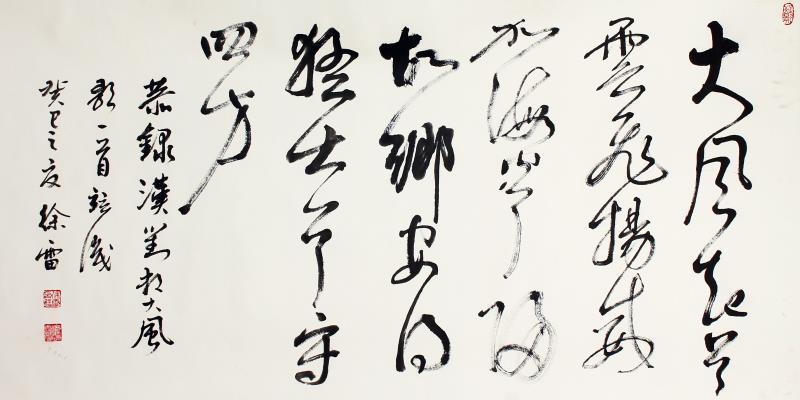 大風起兮
雲飛揚威
加海內兮歸
故鄉安得
猛士兮守
四方
恭錄漢劉邦大風
歌一首
癸巳之夏徐雷